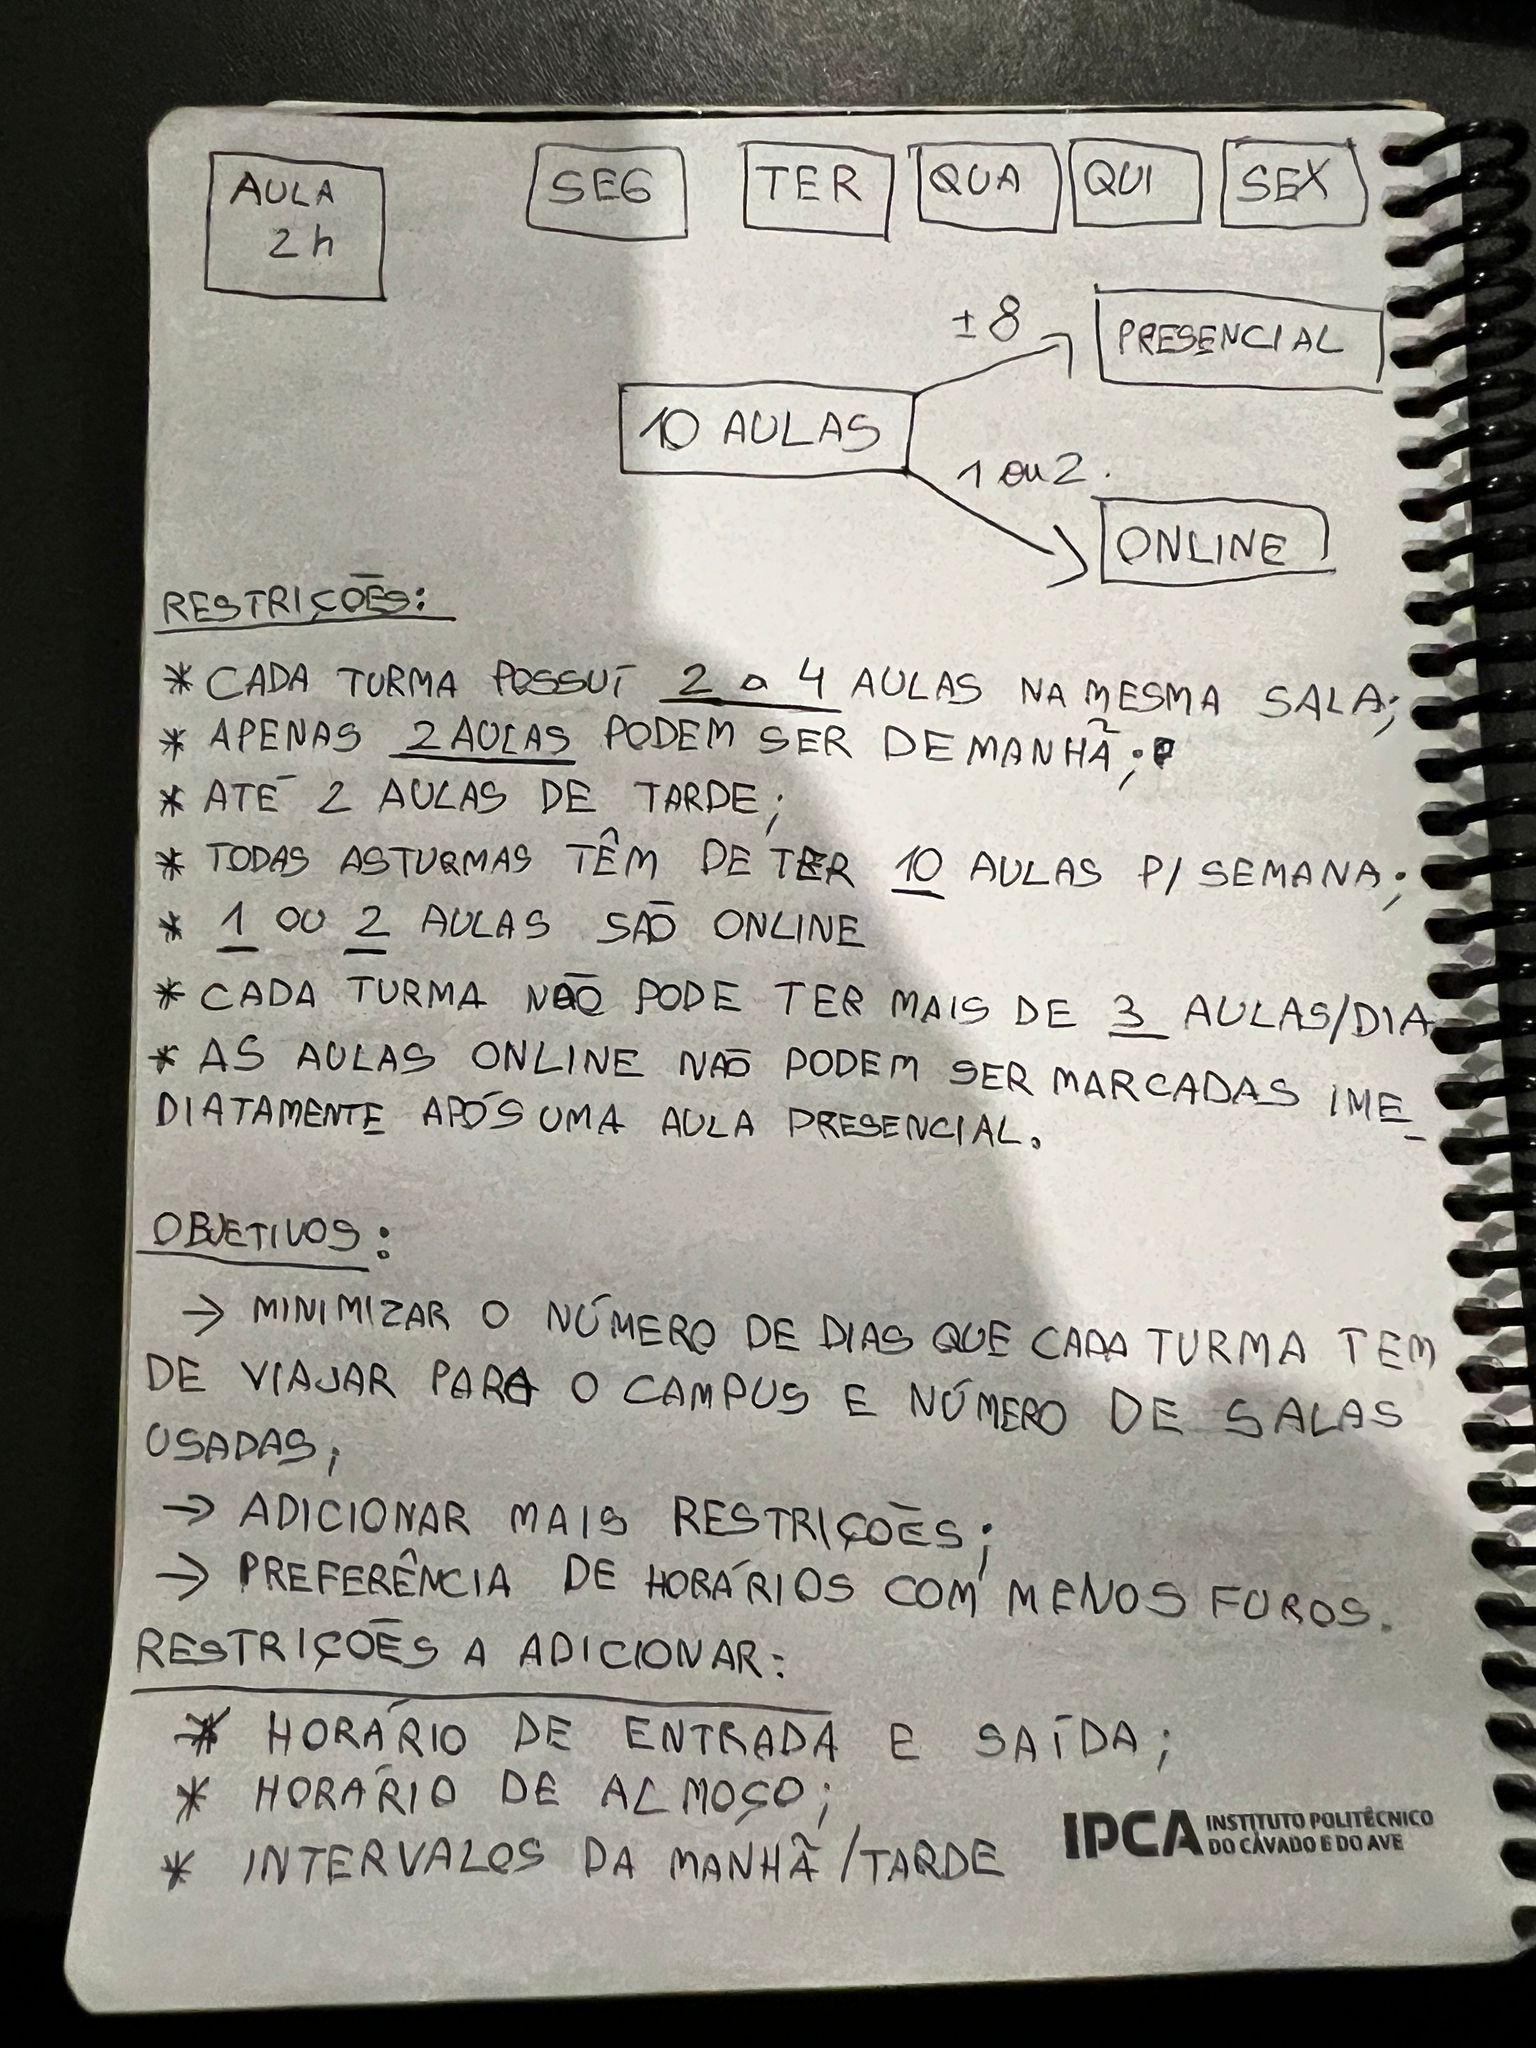 AULA
2h
SEG
TER
QUA
QUI
SEX
±8
PRESENCIAL
10 AULAS
1 ou 2.
ONLINE
RESTRIÇÕES:
* CADA TURMA POSSUÍ 2 a 4 AULAS NA MESMA SALA;
* APENAS 2 AULAS PODEM SER DE MANHÃ;
* ATÉ 2 AULAS DE TARDE;
* TODAS AS TURMAS TÊM DE TER 10 AULAS P/ SEMANA;
* 1 OU 2 AULAS SÃO ONLINE
* CADA TURMA NÃO PODE TER MAIS DE 3 AULAS/DIA
* AS AULAS ONLINE NÃO PODEM SER MARCADAS IME_
DIATAMENTE APÓS UMA AULA PRESENCIAL.
OBJETIVOS:
→ MINIMIZAR O NÚMERO DE DIAS QUE CADA TURMA TEM
DE VIAJAR PARA O CAMPUS E NÚMERO DE SALAS
USADAS;
→ ADICIONAR MAIS RESTRIÇÕES;
→ PREFERÊNCIA DE HORÁRIOS COM MENOS FUROS.
RESTRIÇÕES A ADICIONAR:
* HORÁRIO DE ENTRADA E SAÍDA;
* HORÁRIO DE ALMOÇO;
* INTERVALOS DA MANHÃ/TARDE
IPCA INSTITUTO POLITÉCNICO
DO CÁVADO E DO AVE